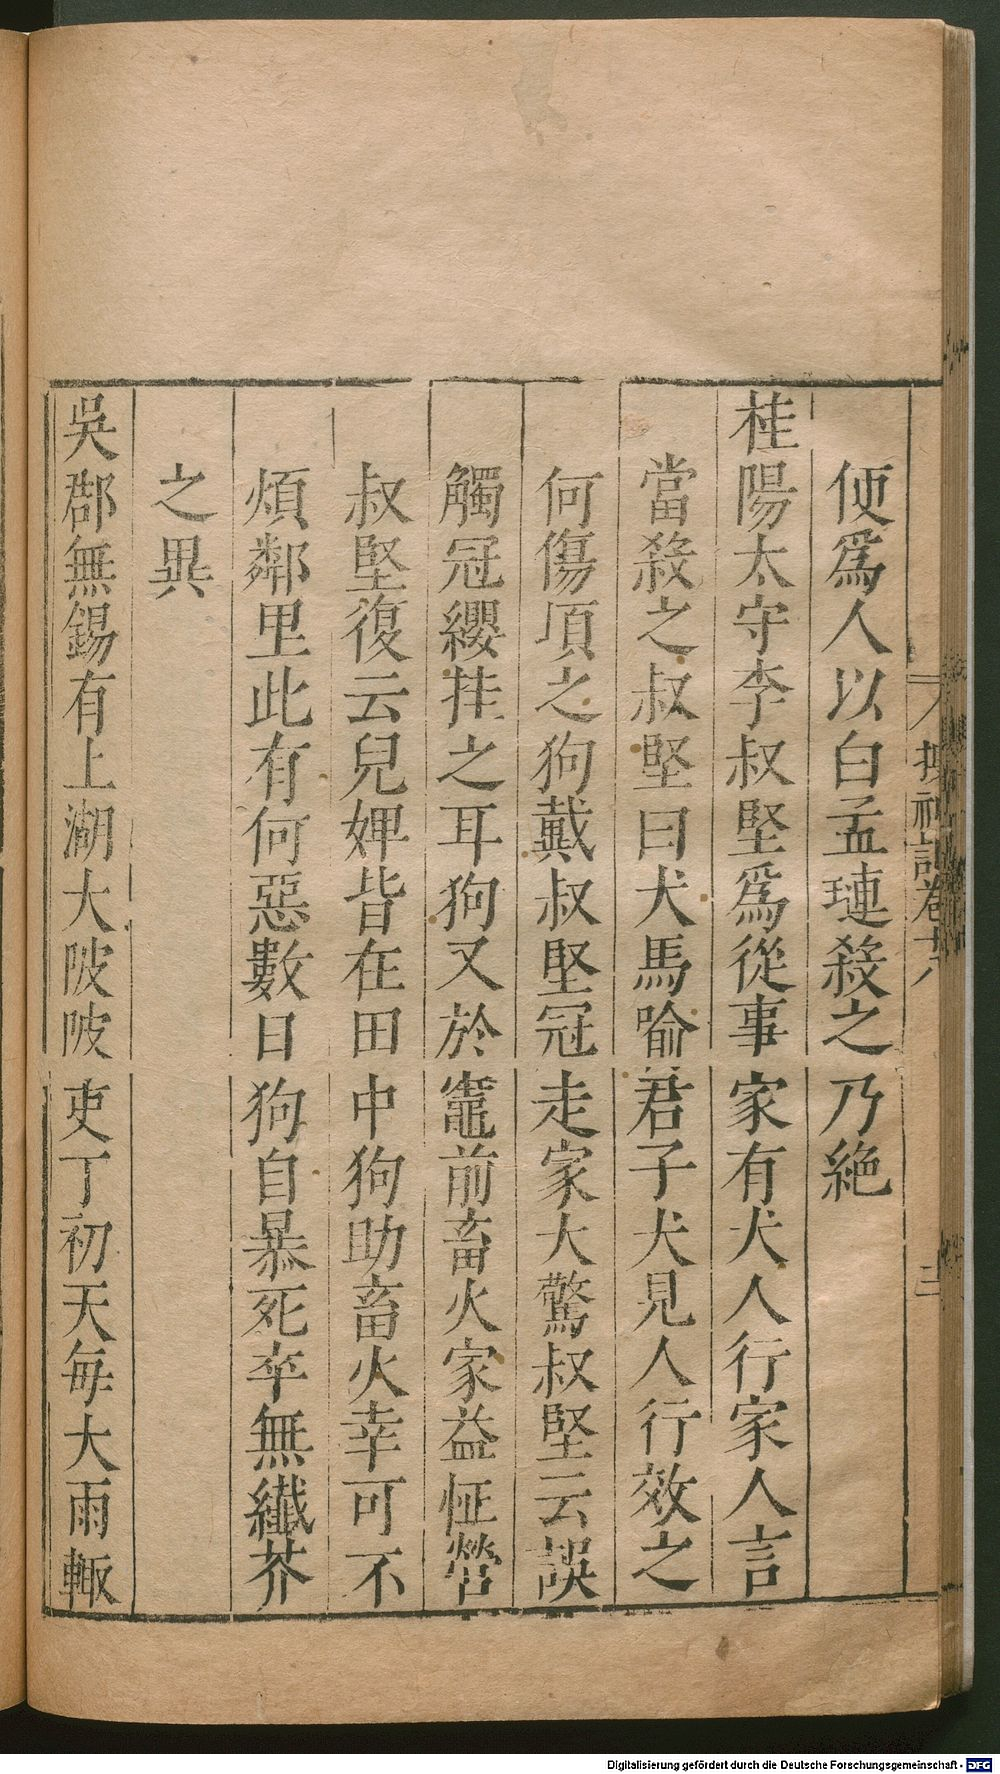 便爲人以白孟璉殺之乃絶
桂陽太守李叔堅爲從事家有犬人行家人言
當殺之叔堅曰犬馬喻君子犬見人行效之
何傷項之狗戴叔堅冠走家大驚叔堅云誤
觸冠纓挂之耳狗又於竈前畜火家益怔營
叔堅復云兒婢皆在田中狗助畜火幸可不
煩鄰里此有何惡數日狗自暴死卒無纖芥
之異
吳郡無錫有上湖大陂陂吏丁初天每大雨輙
搜神記卷十八
二
Digitalisierung gefördert durch die Deutsche Forschungsgemeinschaft - DFG